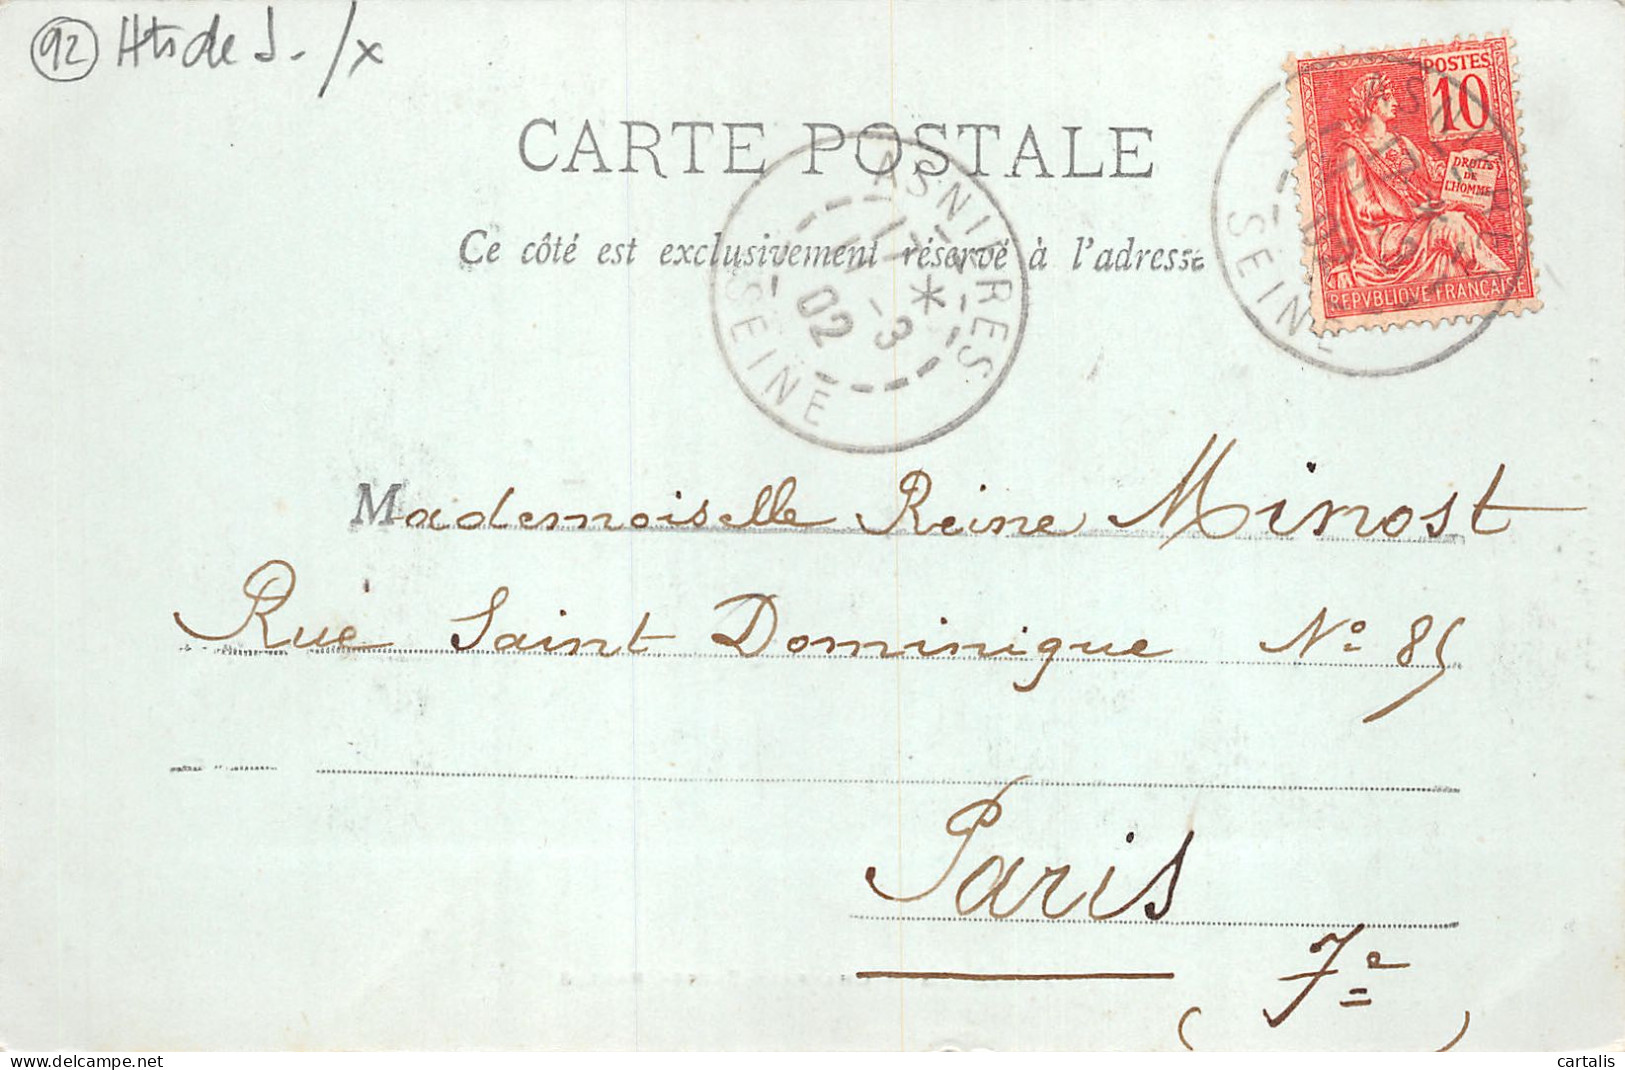 92 Hts de S. /x
POSTES
10
DROITS
DE
L'HOMME
REPVBLIQVE FRANÇAISE
CARTE POSTALE
ASNIERES
11
-3
02
SEINE
SEINE
Ce côté est exclusivement réservé à l'adresse
Mademoiselle Reine Minost
Rue Saint Dominique No 85
Paris
(7e)
cartalis